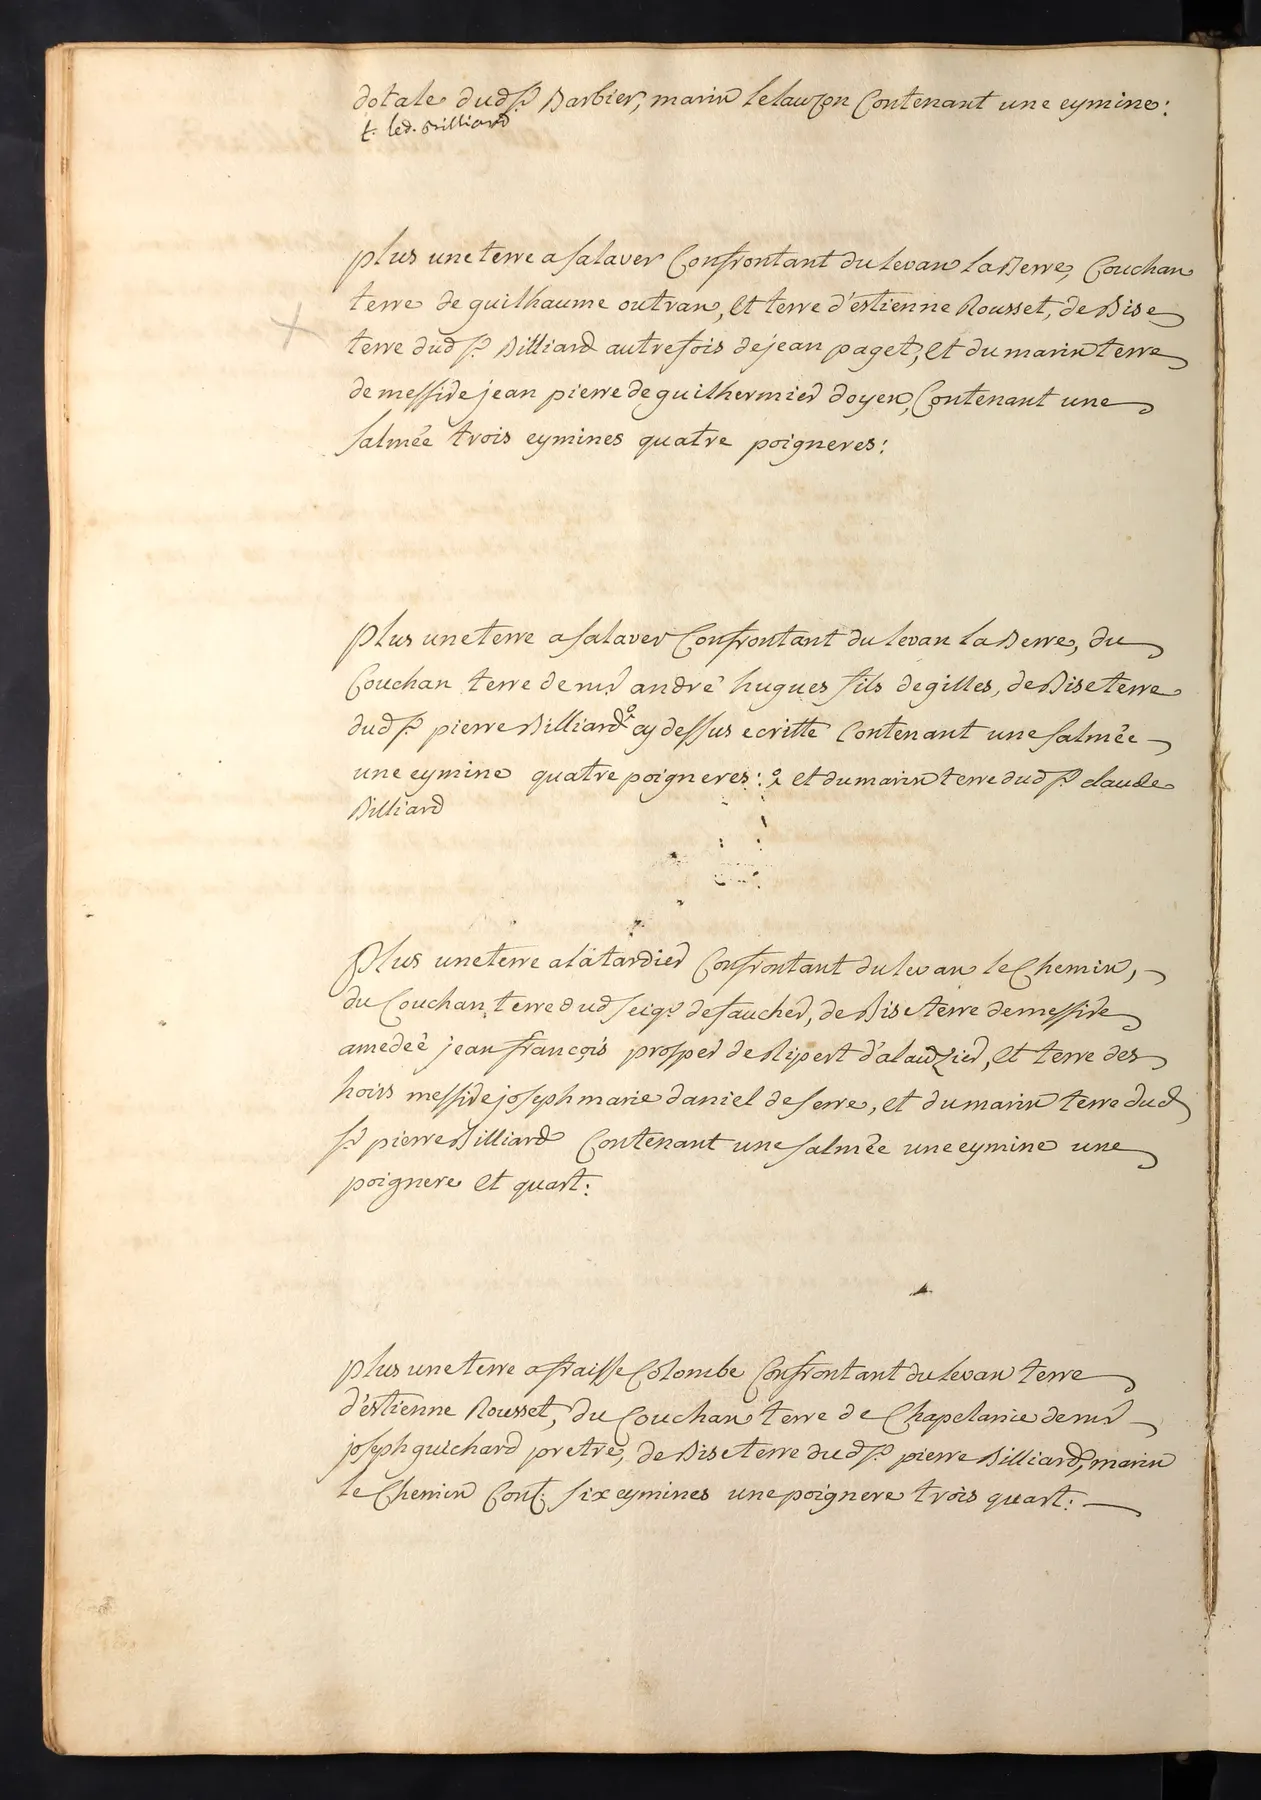 dotale dud sr. Barbier, marin le lauzon Contenant une eymine:
t. led. Billiard
plus une terre a salaver Confrontant du levan la Berre, Couchan
terre de guilhaume outran, et terre d'estienne Rousset, de Bise
terre dud sr. Billiard autrefois de jean paget, et du marin terre
de messire jean pierre de guilhermier doyen, Contenant une
salmée trois eymines quatre poigneres:
Plus une terre a salaver Confrontant du levan la Berre, du
Couchan terre de mr andré hugues fils de gilles, de Bise terre
dud sr. pierre Billiard cy dessus ecritte Contenant une salmée
une eymine quatre poigneres: et du marin terre dud sr. claude
Billiard
Plus une terre a latardier Confrontant du levan le Chemin,
du Couchan terre dud seigr. de faucher, de Bise terre de messire
amedeé jean françois prosper de Ripert d'alauzier, et terre des
hoirs messire joseph marie daniel de serre, et du marin terre dud
sr. pierre Billiard Contenant une salmée une eymine une
poignere et quart:
plus une terre a fraisse Colombe Confrontant du levan terre
d'estienne Rousset, du Couchan terre de Chapelanie de mr
joseph guichard pretre, de Bise terre dud sr. pierre Billiard, marin
le Chemin Cont. six eymines une poignere trois quart: